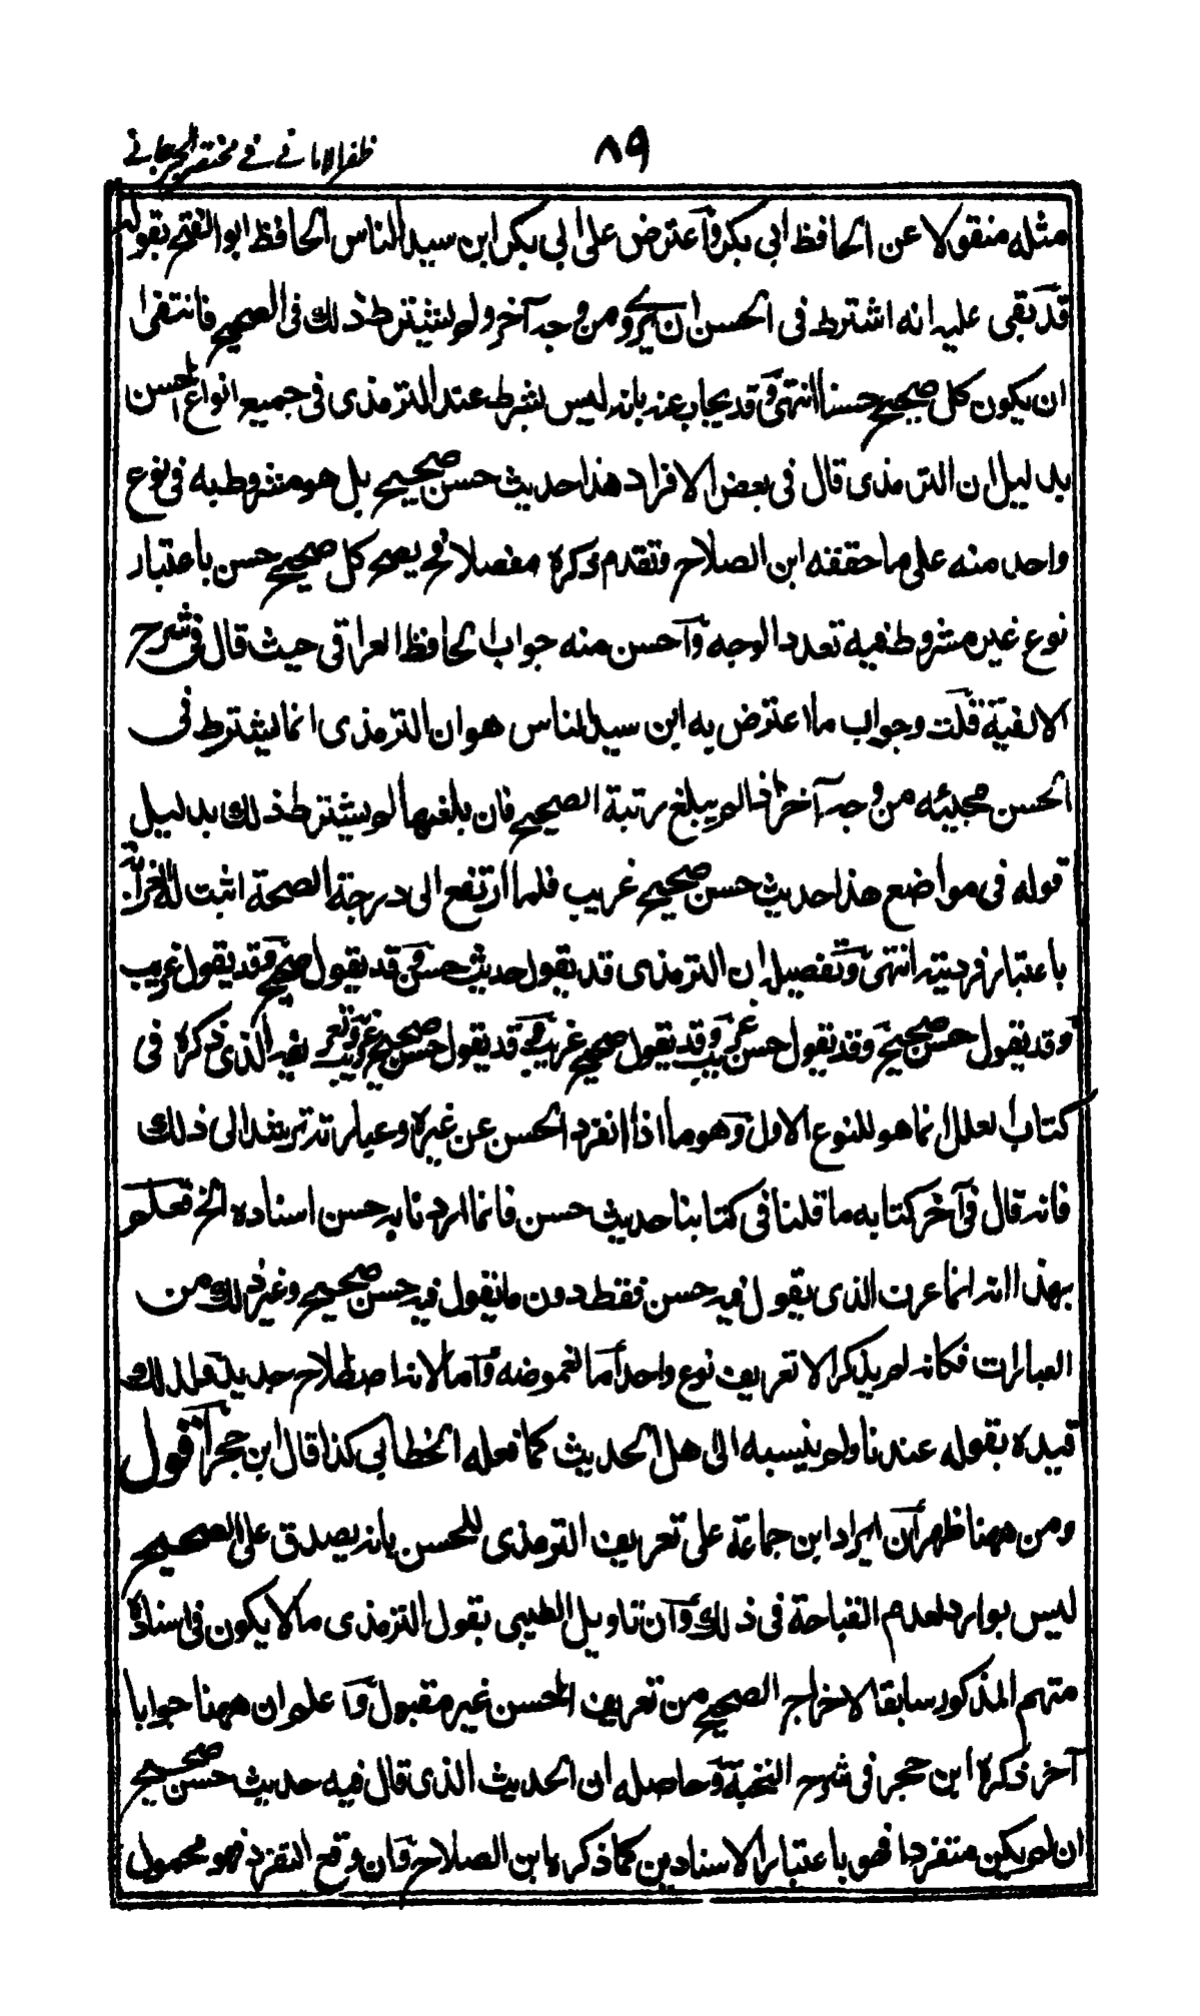 ٨٩
ظفر الاماني في مختصر الجرجاني
مثله منقولا عن الحافظ ابي بكر واعترض على ابي بكر ابن سيد الناس الحافظ ابو الفتح بقوله
قد بقى عليه انه اشترط فى الحسن ان يروى من وجه آخر ولم يشترط ذلك فى الصحيح فانتفى
ان يكون كل صحيح حسنا انتهى وقد يجاب عنه بانه ليس بشرط عند الترمذى فى جميع انواع الحسن
بدليل ان الترمذى قال فى بعض الافراد هذا حديث حسن صحيح بل هو مشروط به فى نوع
واحد منه على ما حققه ابن الصلاح وتقدم ذكره مفصلا فح يصح كل صحيح حسن باعتبار
نوع غير مشروط فيه تعدد الوجه وآحسن منه جواب الحافظ العراقى حيث قال فى شرح
الالفية قلت وجواب ما اعترض به ابن سيد الناس هو ان الترمذى انما يشترط فى
الحسن مجيئه من وجه آخر اذا لم يبلغ رتبة الصحيح فان بلغها لم يشترط ذلك بدليل
قوله فى مواضع هذا حديث حسن صحيح غريب فلما ارتفع الى درجة الصحة اثبت له الغرابة
باعتبار فرديته انتهى وتفصيله ان الترمذى قد يقول حديث حسن وقد يقول صحيح وقد يقول غريب
وقد يقول حسن صحيح وقد يقول حسن غريب وقد يقول صحيح غريب وقد يقول حسن صحيح غريب وتعريفه الذى ذكره فى
كتاب العلل انما هو للنوع الاول وهو ما اذا انفرد الحسن عن غيره وعبارته ترشد الى ذلك
فانه قال فى آخر كتابه ما قلنا فى كتابنا حديث حسن فانما اردنا به حسن اسناده الخ فعلم
بهذا انه انما عرف الذى يقول فيه حسن فقط دون ما يقول فيه حسن صحيح وغير ذلك من
العبارات فكانه لم يذكر الا تعريف نوع واحد اما لغموضه واما لانه اصطلاح جديد ولذلك
قيده بقوله عندنا ولم ينسبه الى اهل الحديث كما فعله الخطابي كذا قال ابن حجر اقول
ومن ههنا ظهر ان ايراد ابن جماعة على تعريف الترمذى للحسن بانه يصدق على الصحيح
ليس بوارد لعدم القباحة فى ذلك وآن تاويل الطيبى بقول الترمذى ما لا يكون فى اسناده
متهم المذكور سابقا لاخراج الصحيح من تعريف الحسن غير مقبول وآعلم ان ههنا جوابا
آخر ذكره ابن حجر فى شرح النخبة وحاصله ان الحديث الذى قال فيه حديث حسن صحيح
ان لم يكن متفردا فهو باعتبار الاسنادين كما ذكره ابن الصلاح وان وقع التفرد فهو محمول